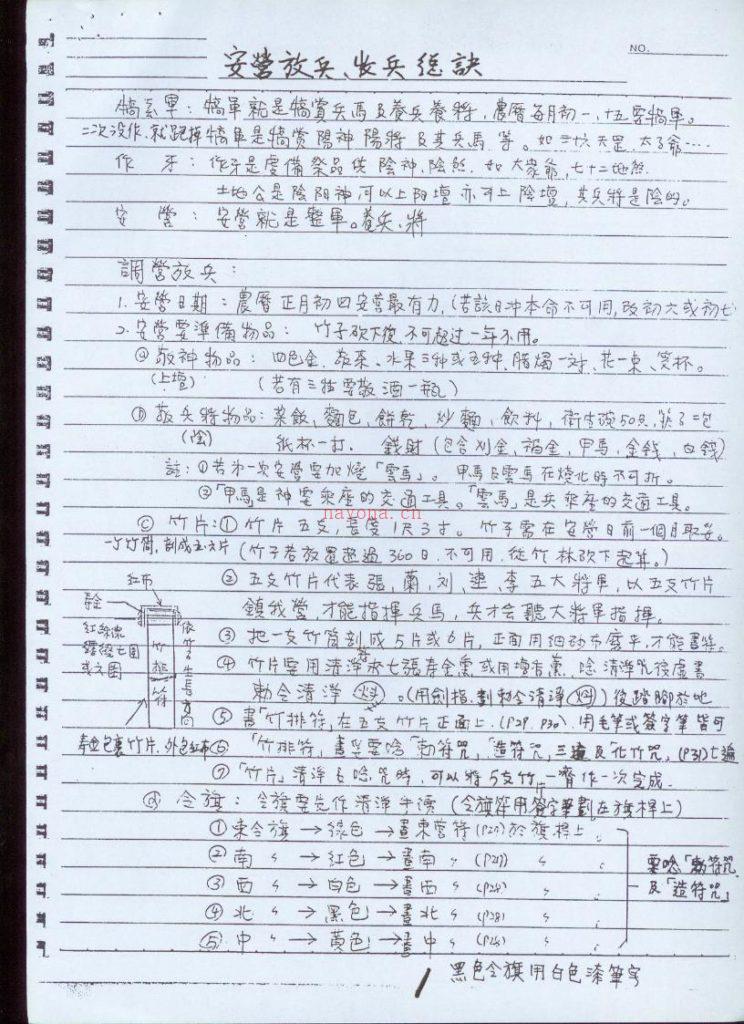 NO.
安營放兵、收兵總訣
犒軍：犒軍就是犒賞兵馬及養兵養將，農曆每月初一、十五要犒軍。
二次没作，就跑掉犒軍是犒赏陽神陽將及其兵馬等。如三十六天罡、太子爺……
作牙：作牙是虔備祭品供陰神、陰煞。如大眾爺，七十二地煞。
土地公是陰阳神可以上阳壇亦可上陰壇，其兵將是陰的。
安營：安營就是整軍。養兵、將
調營放兵：
1. 安營日期：農曆正月初四安營最有力，(若該日沖本命不可用，改初六或初七
2. 安營要準備物品：竹子砍下後，不可超过一年不用。
ⓐ敬神物品：四色金、發粿、水果三种或五种、腊燭一对、花一束、筊杯。
(上壇) (若有三牲要敬酒一瓶)
ⓑ敬兵將物品：菜飯，麵包，餅乾，炒麵，飲料，衛生碗50只，筷子二包
(陰) 紙杯一打. 錢財(包含刈金，福金，甲馬，金錢，白錢)
註：①若第一次安營要加燒「雲馬」。甲馬及雲馬在燒化時不可折。
②「甲馬是神要乘座的交通工具。「雲馬」是兵乘座的交通工具。
ⓒ竹片：①竹片五支，長度1尺3寸。竹子需在安營日前一個月取妥。
一丁竹筒，剖成五六片(竹子若放置超過360日，不可用，從竹林砍下起算。)
②五支竹片代表張，蕭，刘，連，李五大將軍，以五支竹片
鎮我營，才能指揮兵馬，兵才會聽大將軍指揮。
③把一支竹筒剖成5片或6片，正面用細砂布磨平，才能畫符。
④竹片要用清淨水七張壽金薰或用壇香薰，唸清淨咒後虛書
勅令清淨。(用劍指，劃勅令清淨)後踏腳於地
⑤畫「竹排符」在五支竹片正面上。(P29、P30)．用毛筆或簽字筆皆可
⑥「竹排符」畫妥要唸「勅符咒」，「造符咒」，三遍及「化竹咒」(P31)七遍
⑦「竹片」清淨与唸咒時，可以將5支竹片一齊作一次完成．
紅布
壽金
紅絲線
纏繞七圈
或六圈
竹排符
依竹生長方向
壽金包裹竹片，外包紅布
ⓓ令旗：令旗要先作清淨手續(令旗符用簽字筆劃在旗桿上)
①東令旗→綠色→畫東營符(P27)於旗桿上
②南〃→紅色→畫南〃(P27)〃
③西〃→白色→畫西〃(P28)〃
④北〃→黑色→畫北〃(P28)〃
⑤中〃→黄色→畫中〃(P28)〃
要唸「勅符咒」
及「造符咒」
黑色令旗用白色漆筆写
1
nayona.cn